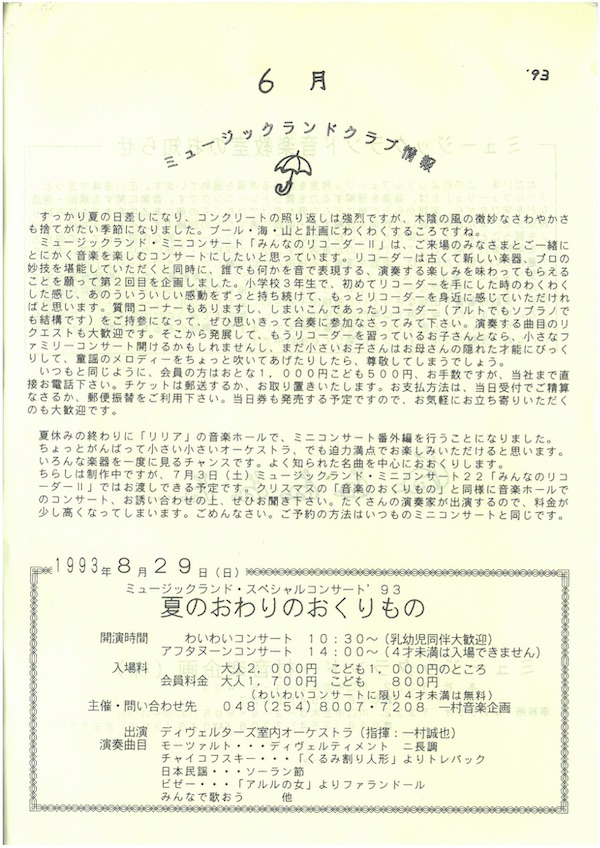 6月
'93
ミュージックランドクラブ情報
すっかり夏の日差しになり、コンクリートの照り返しは強烈ですが、木陰の風の微妙なさわやかさ
も捨てがたい季節になりました。プール・海・山と計画にわくわくするころですね。
ミュージックランド・ミニコンサート「みんなのリコーダーⅡ」は、ご来場のみなさまとご一緒に
とにかく音楽を楽しむコンサートにしたいと思っています。リコーダーは古くて新しい楽器、プロの
妙技を堪能していただくと同時に、誰でも何かを音で表現する、演奏する楽しみを味わってもらえる
ことを願って第2回目を企画しました。小学校3年生で、初めてリコーダーを手にした時のわくわく
した感じ、あのういういしい感動をずっと持ち続けて、もっとリコーダーを身近に感じていただけれ
ばと思います。質問コーナーもありますし、しまいこんであったリコーダー(アルトでもソプラノで
も結構です)をご持参になって、ぜひ思いきって合奏に参加なさってみて下さい。演奏する曲目のリ
クエストも大歓迎です。そこから発展して、もうリコーダーを習っているお子さんとなら、小さなフ
ァミリーコンサート開けるかもしれませんし、まだ小さいお子さんはお母さんの隠れた才能にびっく
りして、童謡のメロディーをちょっと吹いてあげたりしたら、尊敬してしまうでしょう。
いつもと同じように、会員の方はおとな1,000円こども500円、お手数ですが、当社まで直
接お電話下さい。チケットは郵送するか、お取り置きいたします。お支払方法は、当日受付でご精算
なさるか、郵便振替をご利用下さい。当日券も発売する予定ですので、お気軽にお立ち寄りいただく
のも大歓迎です。
夏休みの終わりに「リリア」の音楽ホールで、ミニコンサート番外編を行うことになりました。
ちょっとがんばって小さい小さいオーケストラ、でも迫力満点でお楽しみいただけると思います。
いろんな楽器を一度に見るチャンスです。よく知られた名曲を中心におおくりします。
ちらしは制作中ですが、7月3日(土)ミュージックランド・ミニコンサート22「みんなのリコ
ーダーⅡ」ではお渡しできる予定です。クリスマスの「音楽のおくりもの」と同様に音楽ホールで
のコンサート、お誘い合わせの上、ぜひお聞き下さい。たくさんの演奏家が出演するので、料金が
少し高くなってしまいます。ごめんなさい。ご予約の方法はいつものミニコンサートと同じです。
1993年8月29日(日)
ミュージックランド・スペシャルコンサート'93
夏のおわりのおくりもの
開演時間 わいわいコンサート 10:30~(乳幼児同伴大歓迎)
アフタヌーンコンサート 14:00~(4才未満は入場できません)
入場料 大人2,000円 こども1,000円のところ
会員料金 大人1,700円 こども 800円
(わいわいコンサートに限り4才未満は無料)
主催・問い合わせ先 048(254)8007・7208 一村音楽企画
出演 ディヴェルターズ室内オーケストラ(指揮:一村誠也)
演奏曲目 モーツァルト・・・ディヴェルティメント ニ長調
チャイコフスキー・・・「くるみ割り人形」よりトレパック
日本民謡・・・ソーラン節
ビゼー・・・「アルルの女」よりファランドール
みんなで歌おう 他